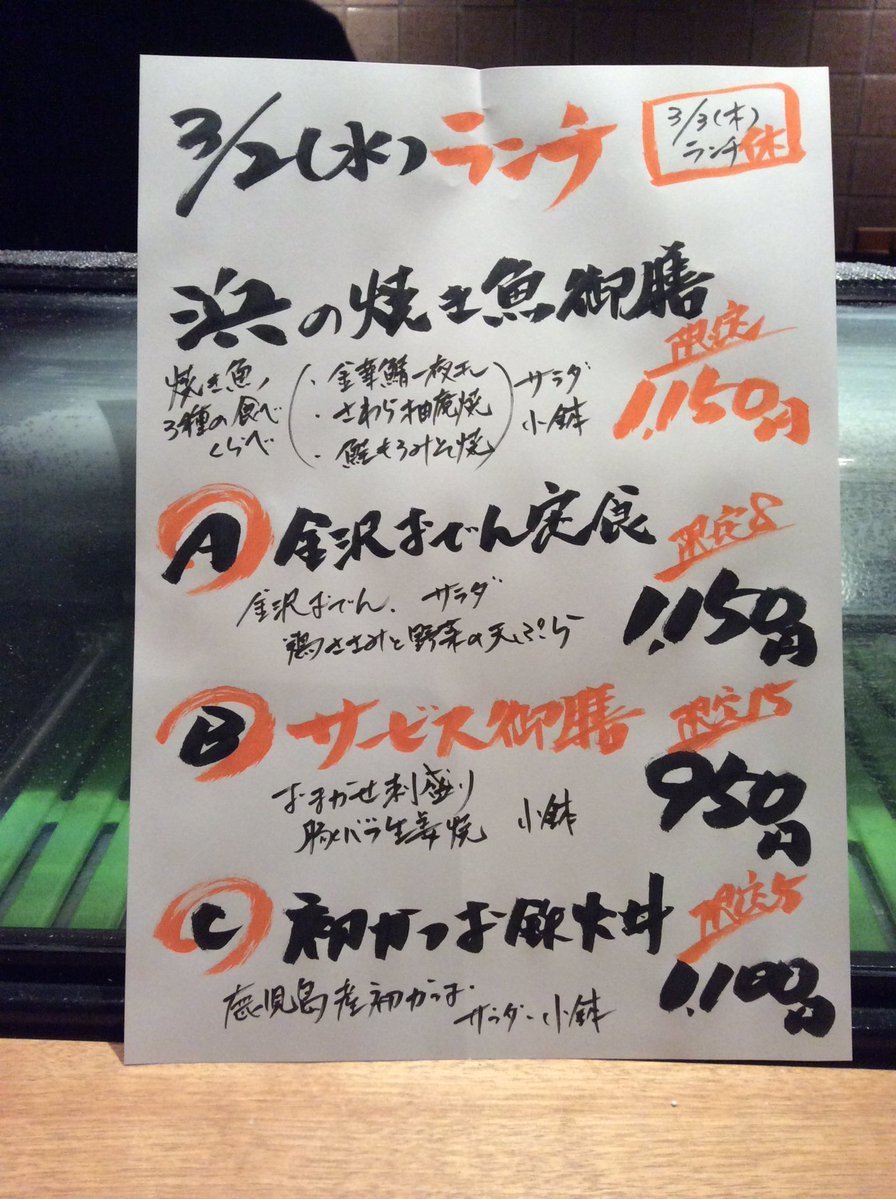 3/2(水)ランチ
3/3(木)
ランチ休
浜の焼き魚御膳
限定
1,150円
焼き魚
3種の食べ
くらべ
・金華鯖一夜干
・さわら柚庵焼
・鮭もろみそ焼
サラダ
小鉢
A 金沢おでん定食
限定8
1,150円
金沢おでん、サラダ
鶏ささみと野菜の天ぷら
B サービス御膳
限定15
950円
おまかせ刺盛り
豚バラ生姜焼 小鉢
C 初かつお鉄火丼
限定5
1,100円
鹿児島産初かつお・
サラダ・小鉢